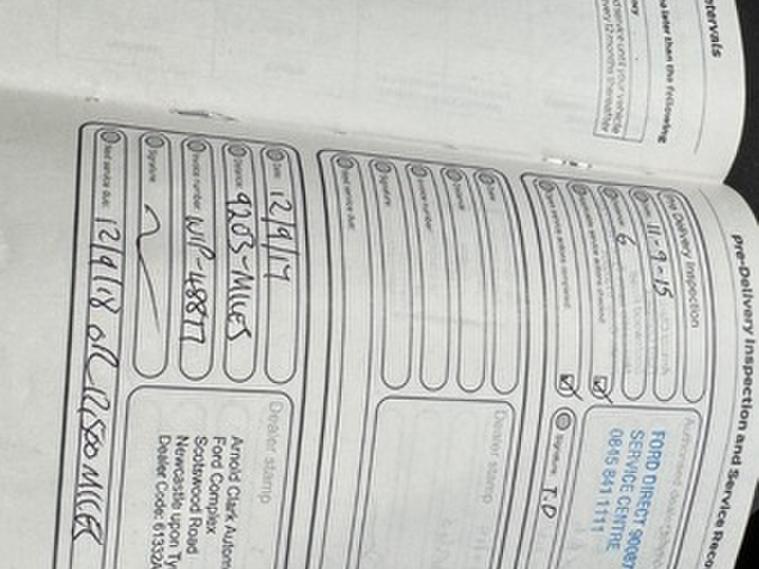 tervals
no later than the following
d service until your vehicle
every 12 months thereafter
Pre-Delivery Inspection and Service Reco
Pre Delivery Inspection
Date 11-9-15
6
Signature T.D
FORD DIRECT
SERVICE CENTRE
0845 841 1111
Date
Distance
Invoice number
Signature
Next service due:
Dealer stamp
Date: 12/9/17
Distance: 9203-MILES
Invoice number WIP-48877
Signature
Next service due: 12/9/18 OR 12,500 MILES
Dealer stamp
Arnold Clark Autom
Ford Complex
Scotswood Road
Newcastle upon Ty
Dealer Code: 61332